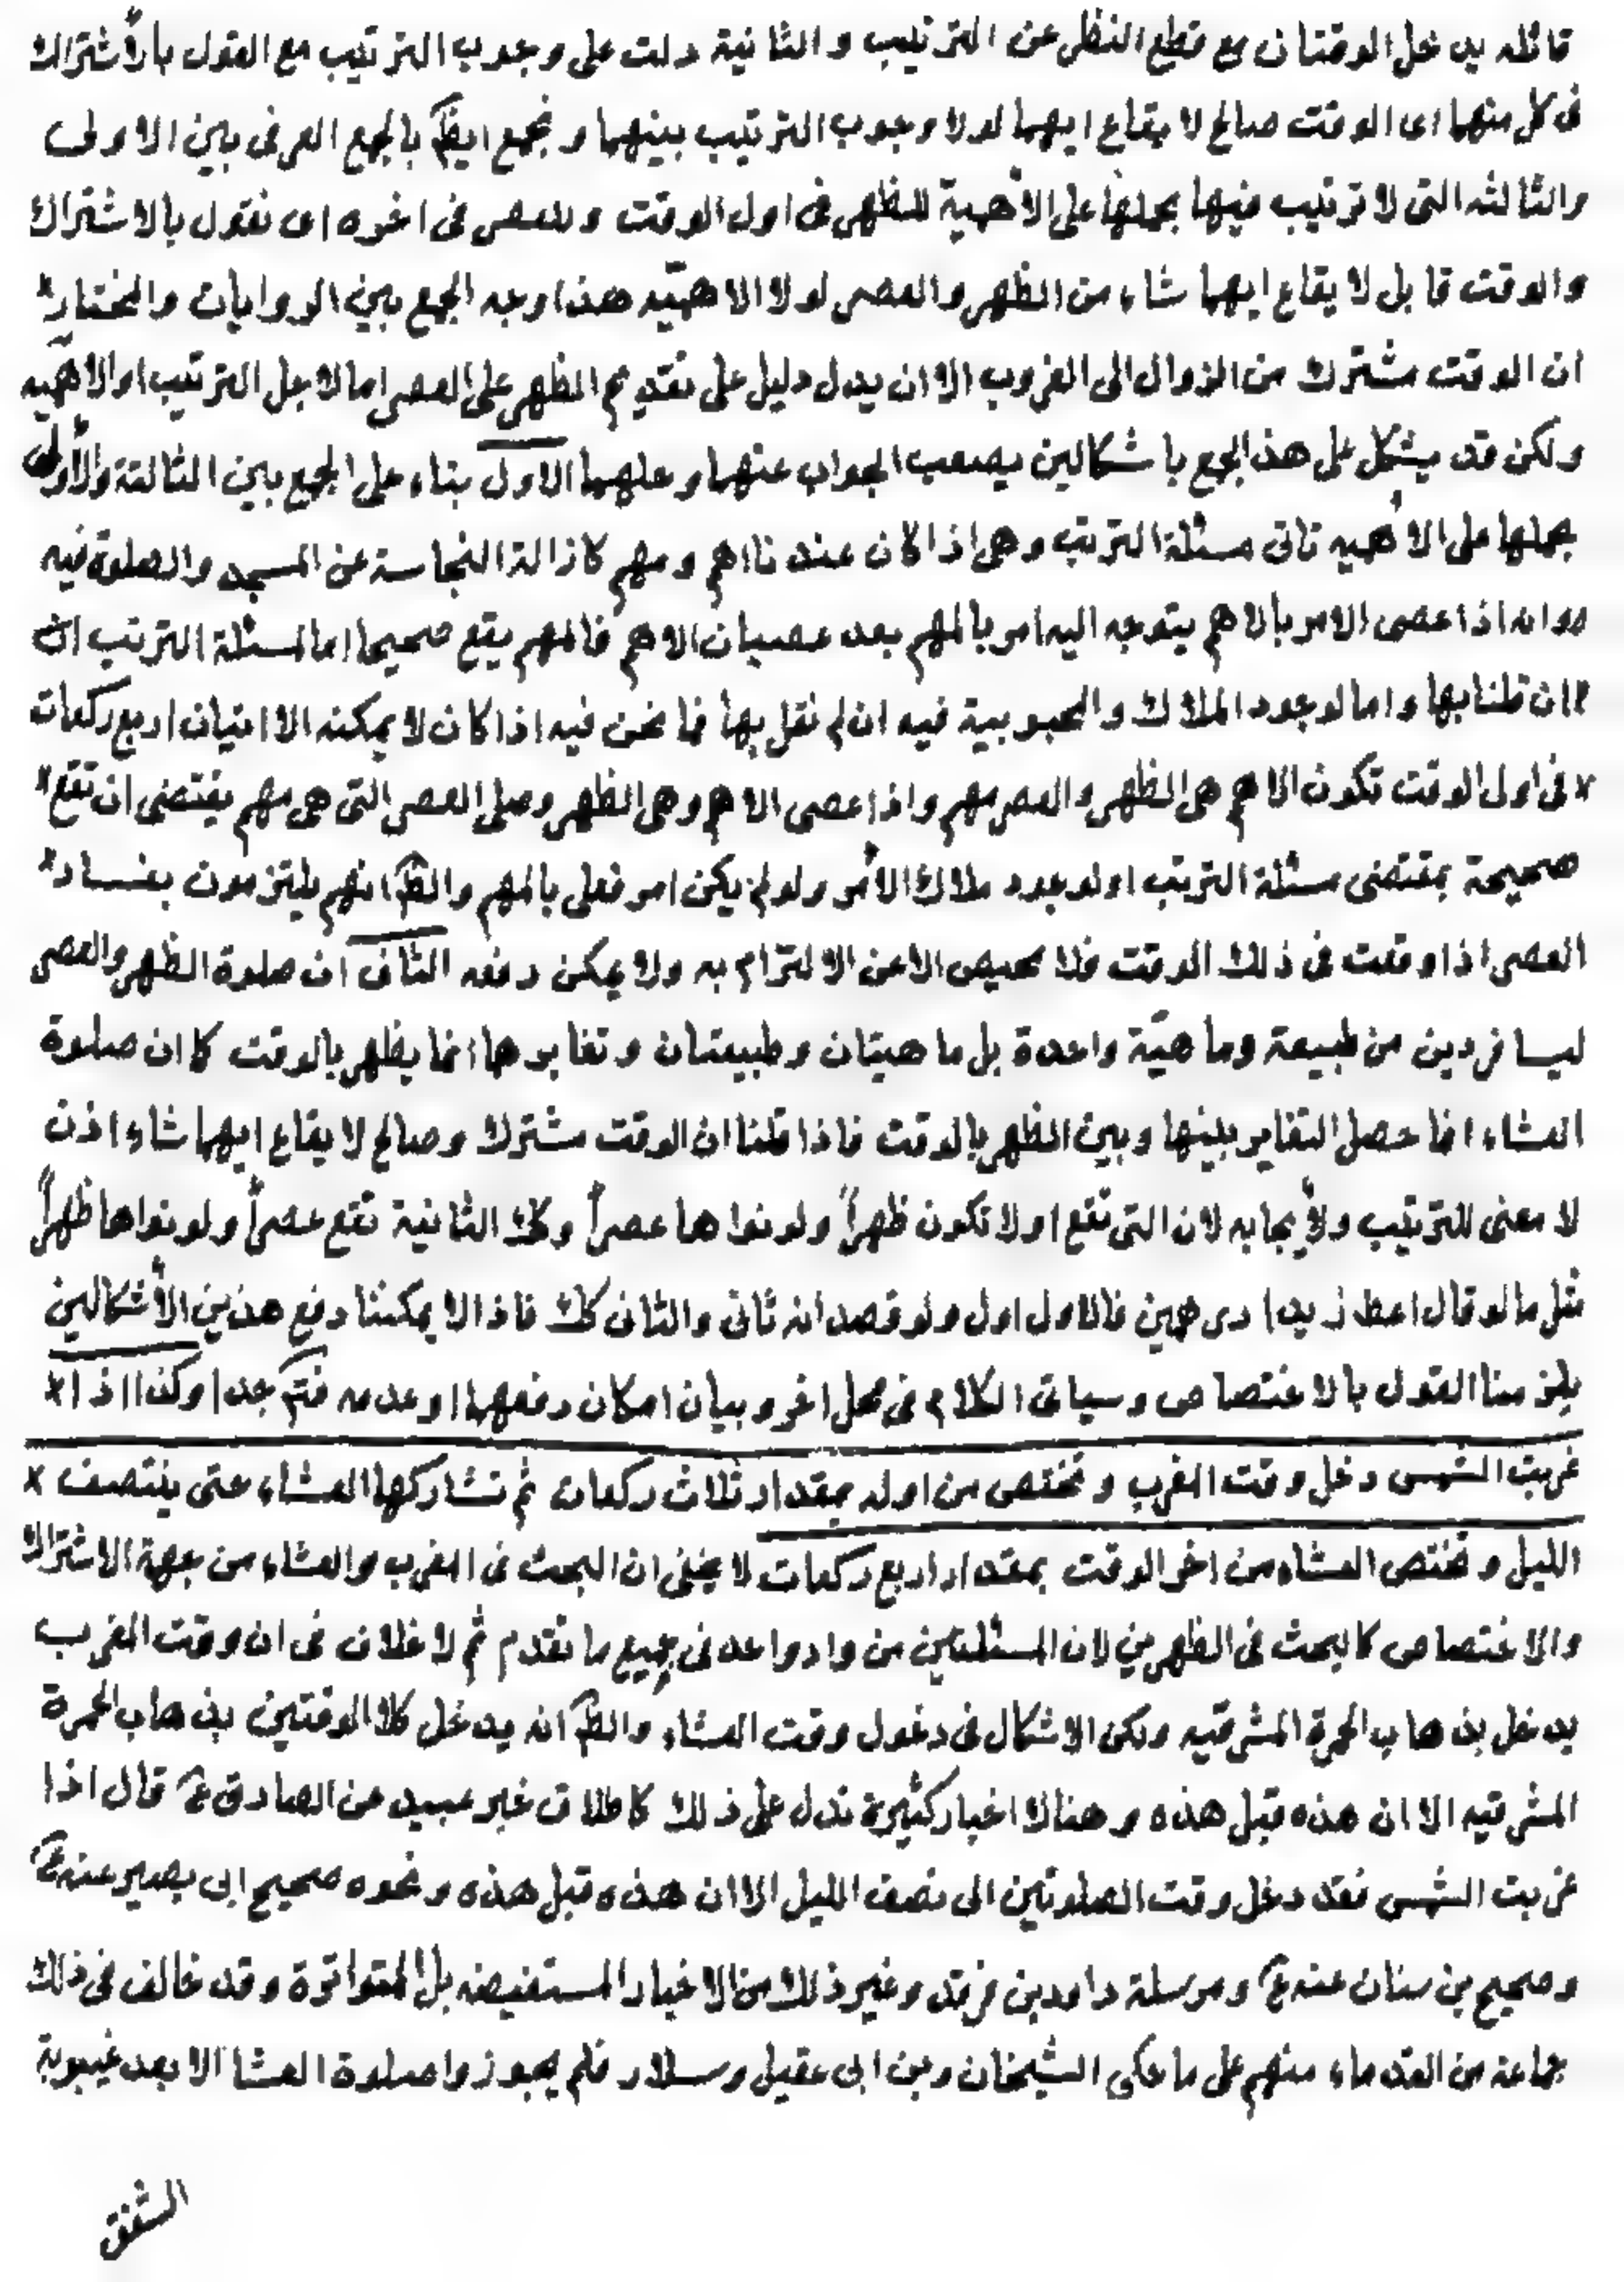 قائله يدخل الوقتان مع قطع النظر عن الترتيب و الثانية دلت على وجوب الترتيب مع القول بالأشتراك
فى كل منهما اى الوقت صالح لا يقاع ايهما لولا وجوب الترتيب بينهما و نجمع ايظً بالجمع العرفى بين الاولى
والثالثه التى لا ترتيب فيها بحملها على الأهمية للظهر فى اول الوقت وللعصر فى اخره اى نقول بالاشتراك
والوقت قابل لا يقاع ايهما شاء من الظهر والعصر لولا الاهميّه هذا وجه الجمع بين الروايات والمختار
ان الوقت مشترك من الزوال الى الغروب الا ان يدل دليل على تقديم الظهر على العصر اما لاجل الترتيب او الاهميّه
ولكن قد يشكل على هذ الجمع باشكالين يصعب الجواب عنهما وحلهما الاول بناء على الجمع بين الثالثة والأولى
بحملها على الأهميه تاتى مسئلة الترتب وهى اذا كان عندنا اهم و مهم كازالة النجاسة عن المسجد والصلوة فيه
وانه اذا عصى الامر بالاهم يتوجه اليه امر بالمهم بعد عصيان الاهم فالمهم يقع صحيحا اما لمسئلة الترتب ان
ان قلنا بها واما لوجود الملاك والمحبوبية فيه ان لم نقل بها فما نحن فيه اذا كان لا يمكنه الا اتيان اربع ركعات
فى اول الوقت تكون الاهم هى الظهر والعصر مهم واذا عصى الاهم وهى الظهر وصلى العصر التى هى مهم يقتضى ان تقع
صحيحة بمقتضى مسئلة الترتب او لوجود ملاك الأمر ولو لم يكن امر فعلى بالمهم والظ انهم يلتزمون بفساد
العصر اذا وقعت فى ذلك الوقت فلا محيص الا عن الالتزام به ولا يمكن دفعه الثانى ان صلوة الظهر والعصر
ليسا فردين من طبيعة وماهيّة واحدة بل ماهيتان وطبيعتان وتغايرها انما يظهر بالوقت كما ان صلوة
العشاء انما حصل التغاير بينها وبين الظهر بالوقت فاذا قلنا ان الوقت مشترك وصالح لا يقاع ايهما شاء اذن
لا معنى للترتيب ولأيجابه لان التى تقع اولا تكون ظهراً ولو نواها عصراً وكك الثانية تقع عصراً ولو نواها ظهراً
مثل ما لو قال اعط زيدا درهمين فالاول اول ولو قصد انه ثانى والثانى كك فاذا لا يمكننا دفع هذين الأشكالين
يلزمنا القول بالاختصاص وسياتى الكلام فى محل اخر وبيان امكان دفعهما او عدمه فتم جدا وكذا اذا
غربت الشمس دخل وقت المغرب و تختص من اوله بمقدار ثلاث ركعات ثم تشاركها العشاء حتى ينتصف
الليل و تختص العشاء من اخر الوقت بمقدار اربع ركعات لا يخفى ان البحث فى المغرب والعشاء من جهة الاشتراك
والاختصاص كالبحث فى الظهرين لان المسئلتين من واد واحد فى جميع ما تقدم ثم لا خلاف فى ان وقت المغرب
يدخل بذهاب الحمرة المشرقيه ولكن الاشكال فى دخول وقت العشاء والظ انه يدخل كلا الوقتين بذهاب الحمرة
المشرقيه الا ان هذه قبل هذه وهنالا اخبار كثيرة تدل على ذلك كاطلاق خبر عبيد عن الصادق ع قال اذا
غربت الشمس فقد دخل وقت الصلوتين الى نصف الليل الا ان هذه قبل هذه و نحوه صحيح ابى بصير عنه ع
و صحيح بن سنان عنه ع و مرسلة داودبن فرقد وغير ذلك من الاخبار المستفيضه بل المتواترة وقد خالف فى ذلك
جماعة من القدماء منهم على ما حكى الشيخان وبن ابى عقيل وسلار فلم يجوزوا صلوة العشا الا بعد غيبوبة
الشفق